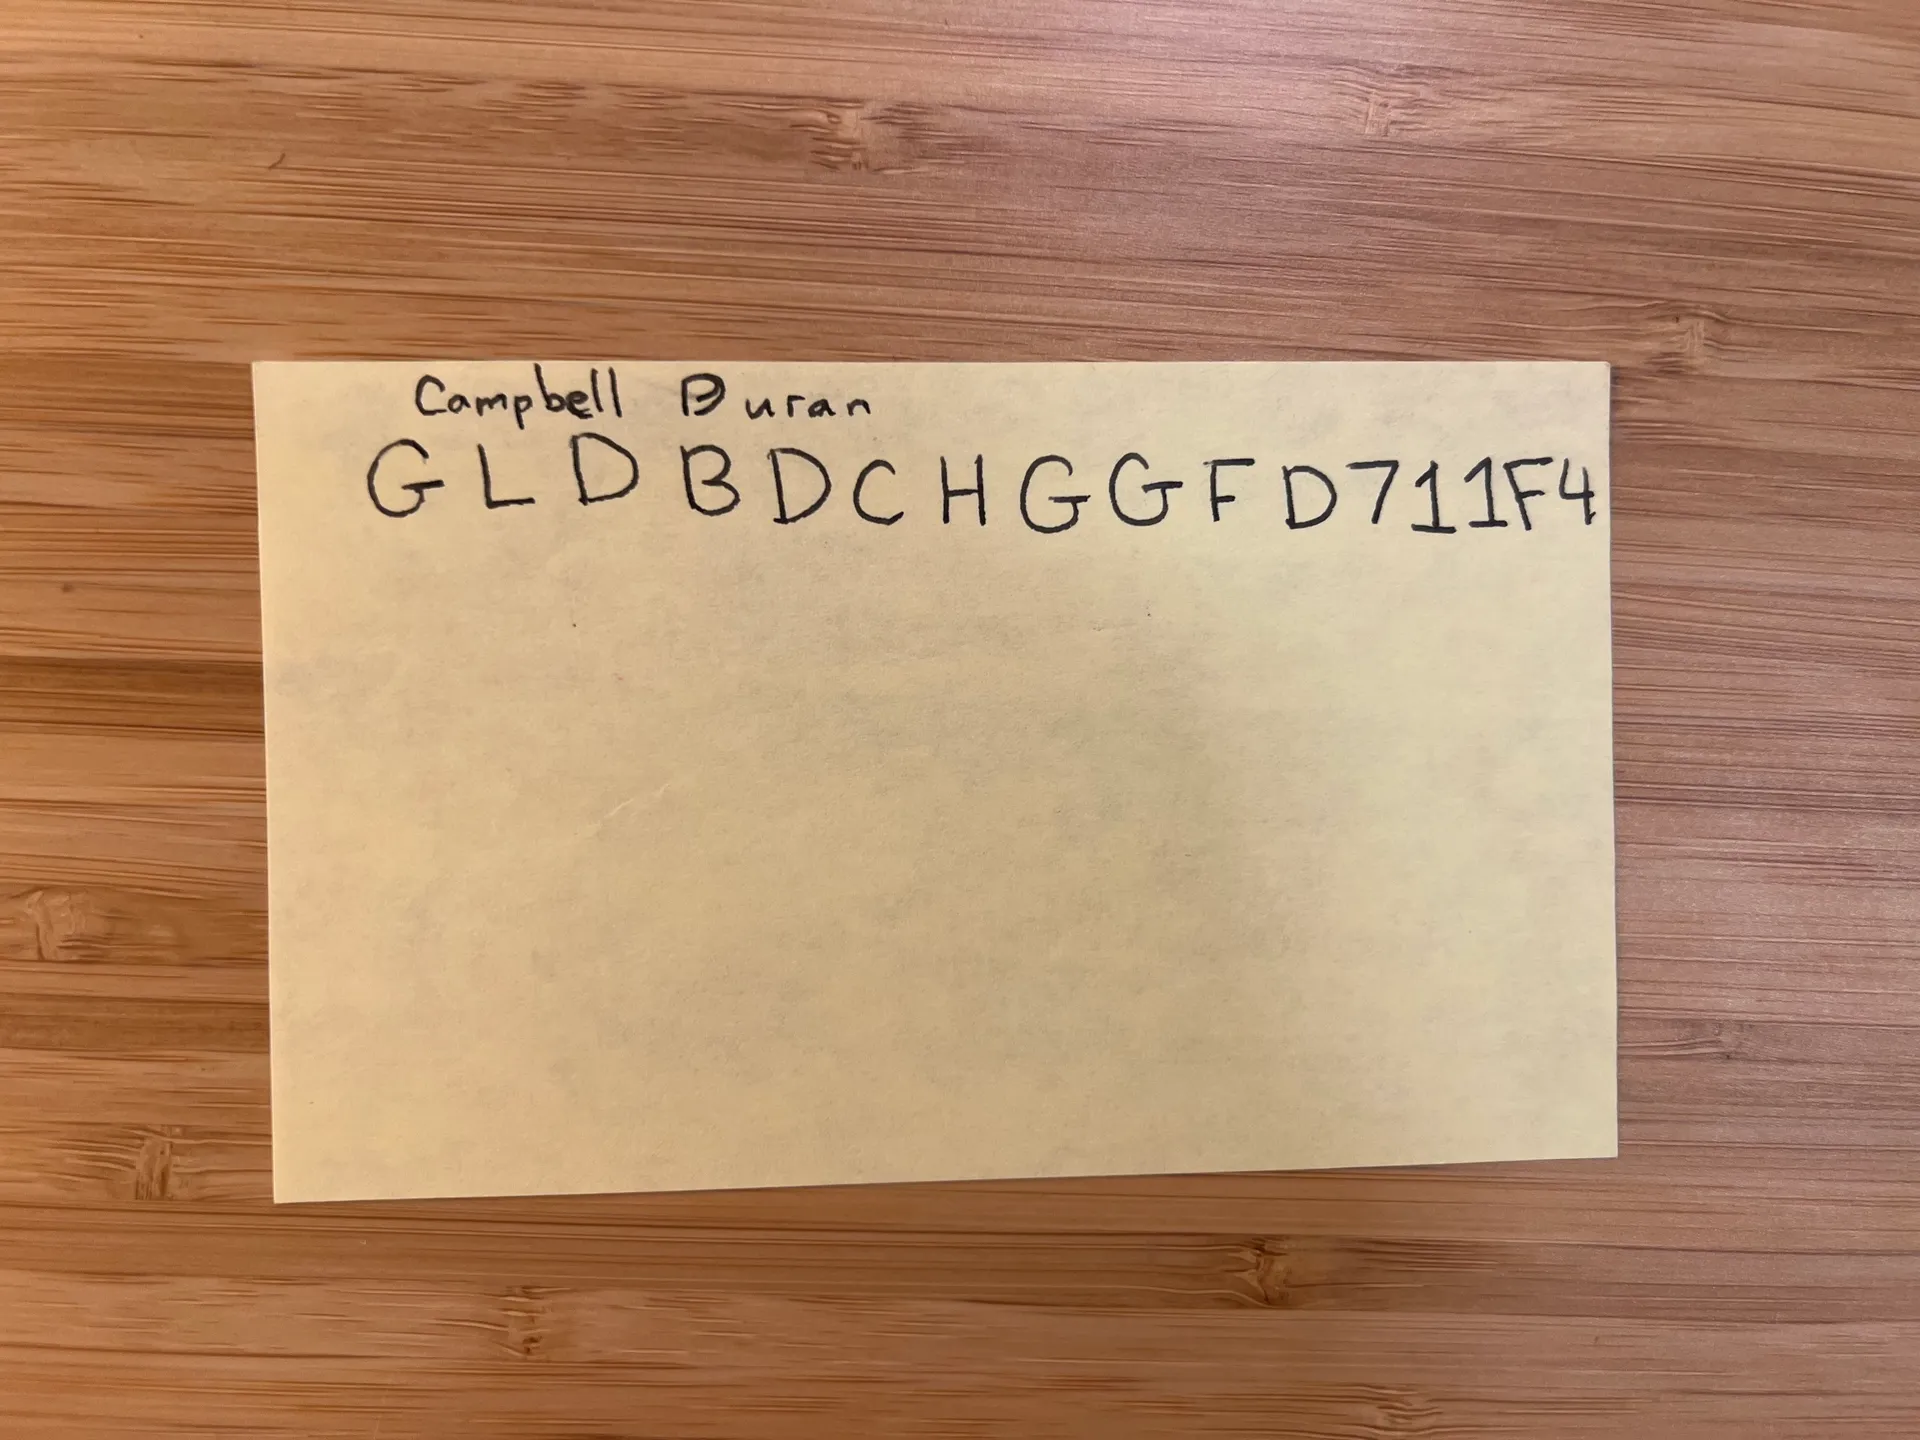 Campbell Buran
G L D B D C H G G F D 7 1 1 F 4